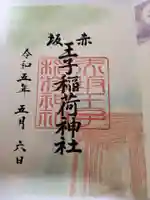 赤坂
王子稲荷神社
令和五年五月六日